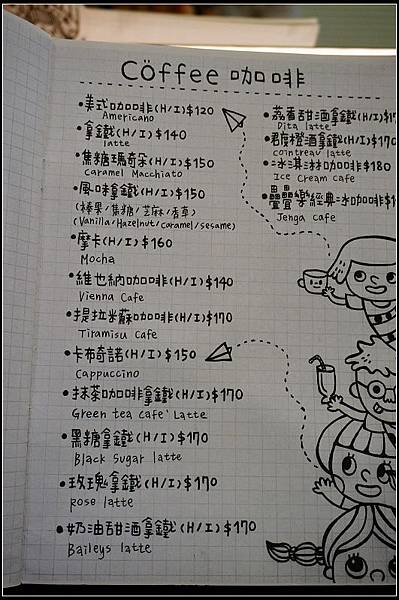 Cöffee 咖啡
•美式咖啡(H/I)$120
Americano
•拿鐵(H/I)$140
latte
•焦糖瑪奇朵(H/I)$150
caramel Macchiato
•風味拿鐵(H/I)$150
(榛果/焦糖/芝麻/香草)
(Vanilla/Hazelnut/caramel/sesame)
•摩卡(H/I)$160
Mocha
•維也納咖啡(H/I)$140
Vienna Cafe
•提拉米蘇咖啡(H/I)$170
Tiramisu Cafe
•卡布奇諾(H/I)$150
Cappuccino
•抹茶咖啡拿鐵(H/I)$170
Green tea cafe' Latte
•黑糖拿鐵(H/I)$170
Black Sugar latte
•玫瑰拿鐵(H/I)$170
Rose latte
•奶油甜酒拿鐵(H/I)$170
Baileys latte
•荔香甜酒拿鐵(H/I)
Dita latte
•君度橙酒拿鐵(H/I)$170
cointreau latte
•冰淇淋咖啡$180
Ice Cream cafe
•疊疊樂經典冰咖啡
Jenga cafe